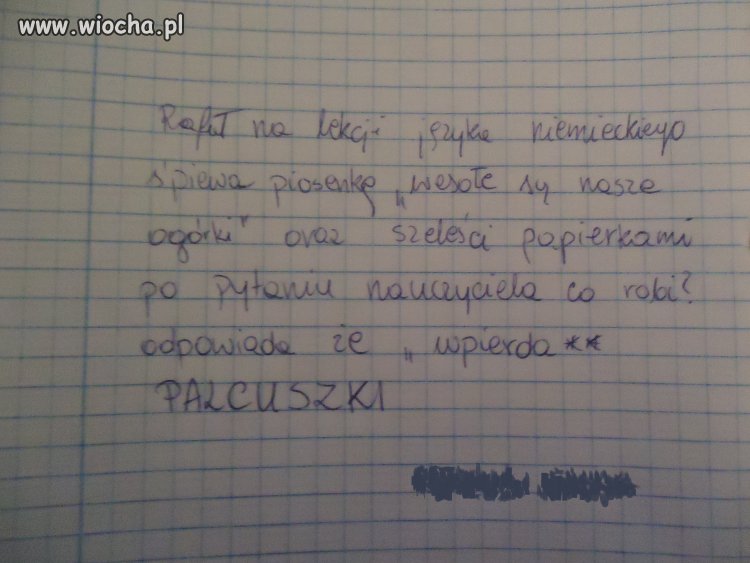 www.wiocha.pl
Rafał na lekcji języka niemieckiego
śpiewa piosenkę „wesołe są nasze
ogórki" oraz szeleści papierkami
po pytaniu nauczyciela co robi?
odpowiada że „wpierda**
PALCUSZKI